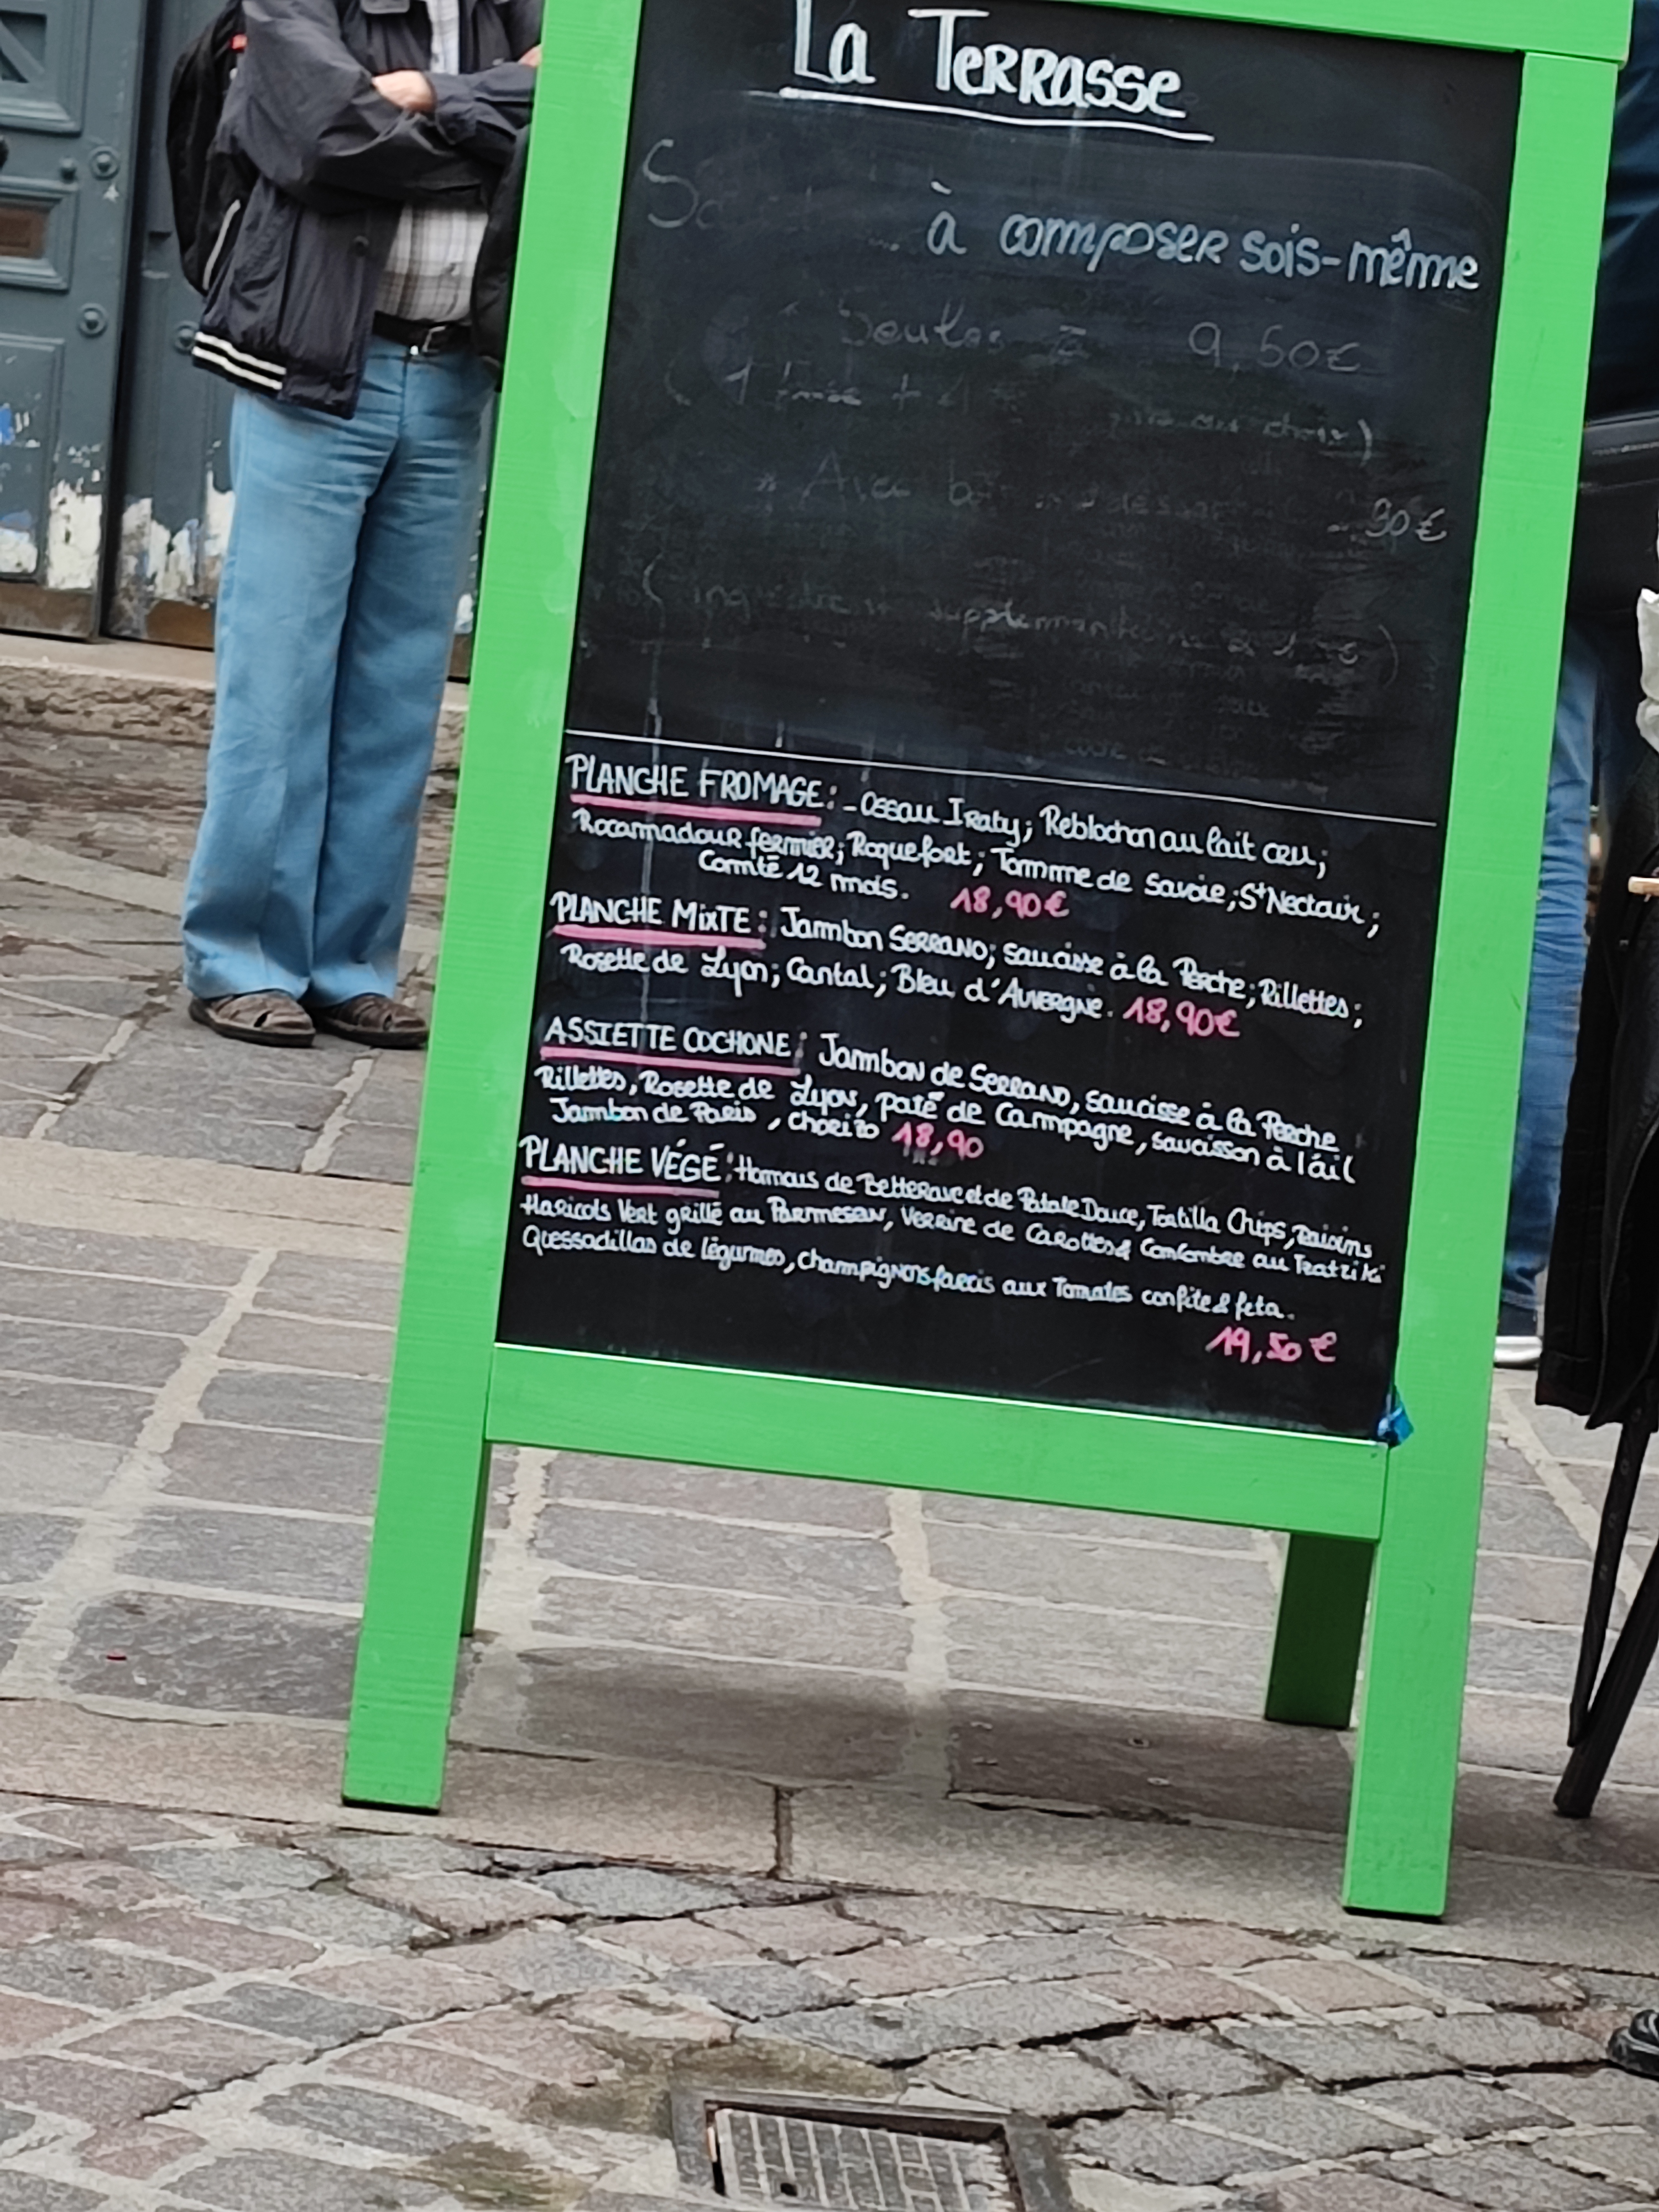 La Terrasse
à composer sois-même
Seules à 9,50€
( 1 + au choix)
* Avec 90€
( supplementaire )
PLANCHE FROMAGE: - Ossau Iraty; Reblochon au lait cru;
Rocamadour fermier; Roquefort; Tomme de Savoie; St Nectair;
Comté 12 mois. 18,90€
PLANCHE MIXTE: Jambon SERRANO; saucisse à la Perche; Rillettes;
Rosette de Lyon; Cantal; Bleu d'Auvergne. 18,90€
ASSIETTE COCHONE: Jambon de SERRANO, saucisse à la Perche
Rillettes, Rosette de Lyon, paté de Campagne, saucisson à l'ail
Jambon de Paris, chorizo 18,90
PLANCHE VÉGÉ: Homous de Betterave et de Patate Douce, Tortilla Chips, raisins
Haricots Vert grillé au Parmesan, Verrine de Carottes & Concombre au Tzatziki
Quessadillas de légumes, champignons farcis aux Tomates confite & feta.
19,50€